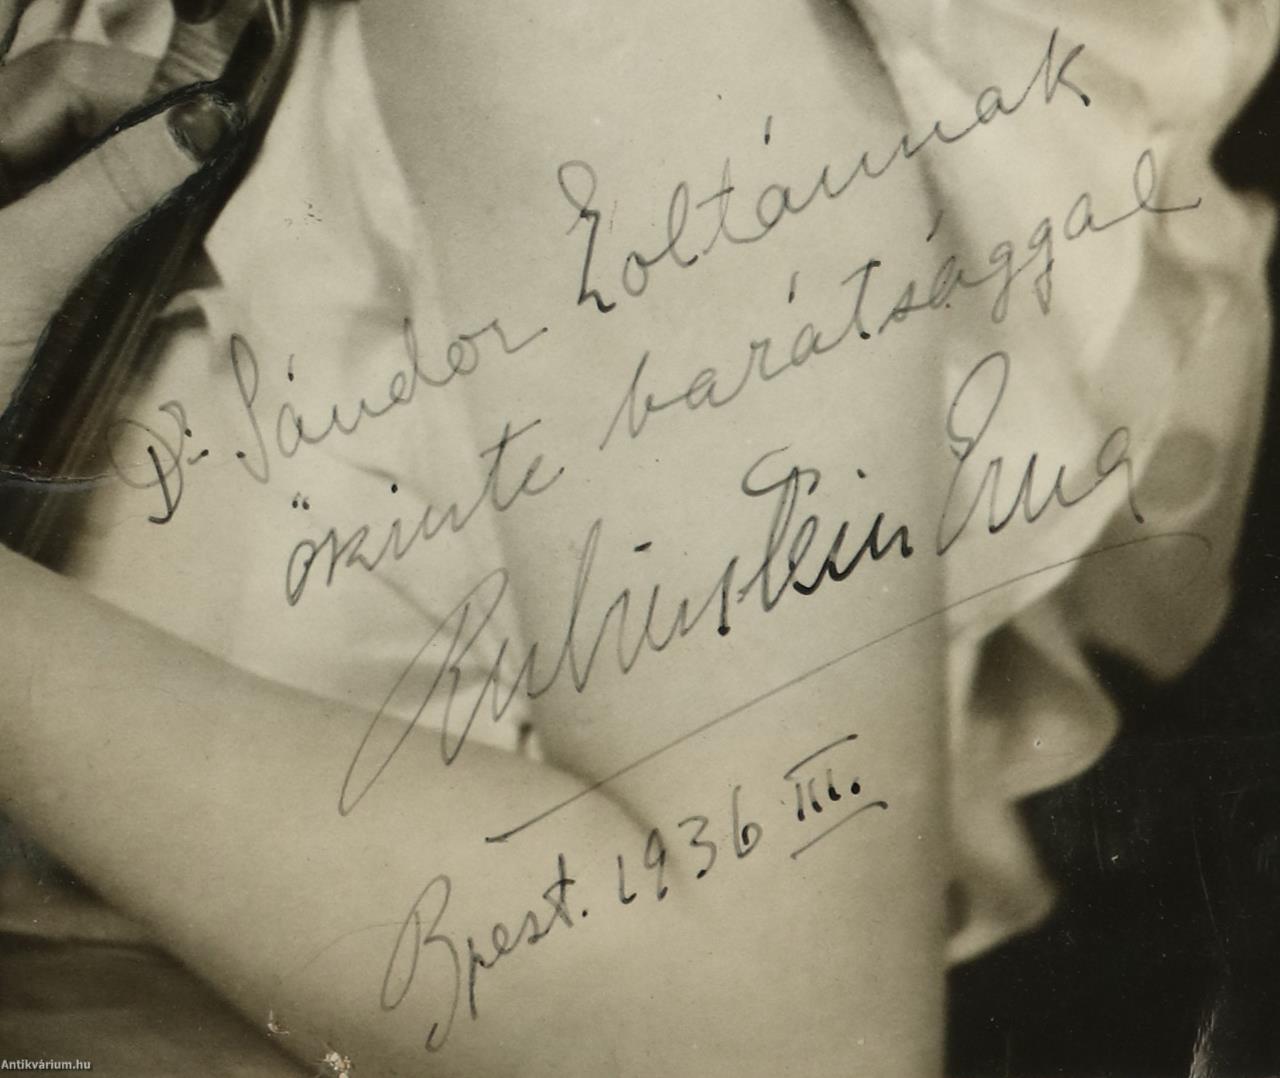 Dr. Sándor Zoltánnak
őszinte barátsággal
Rubinstein Erna
Bpest. 1936 III.
Antikvárium.hu